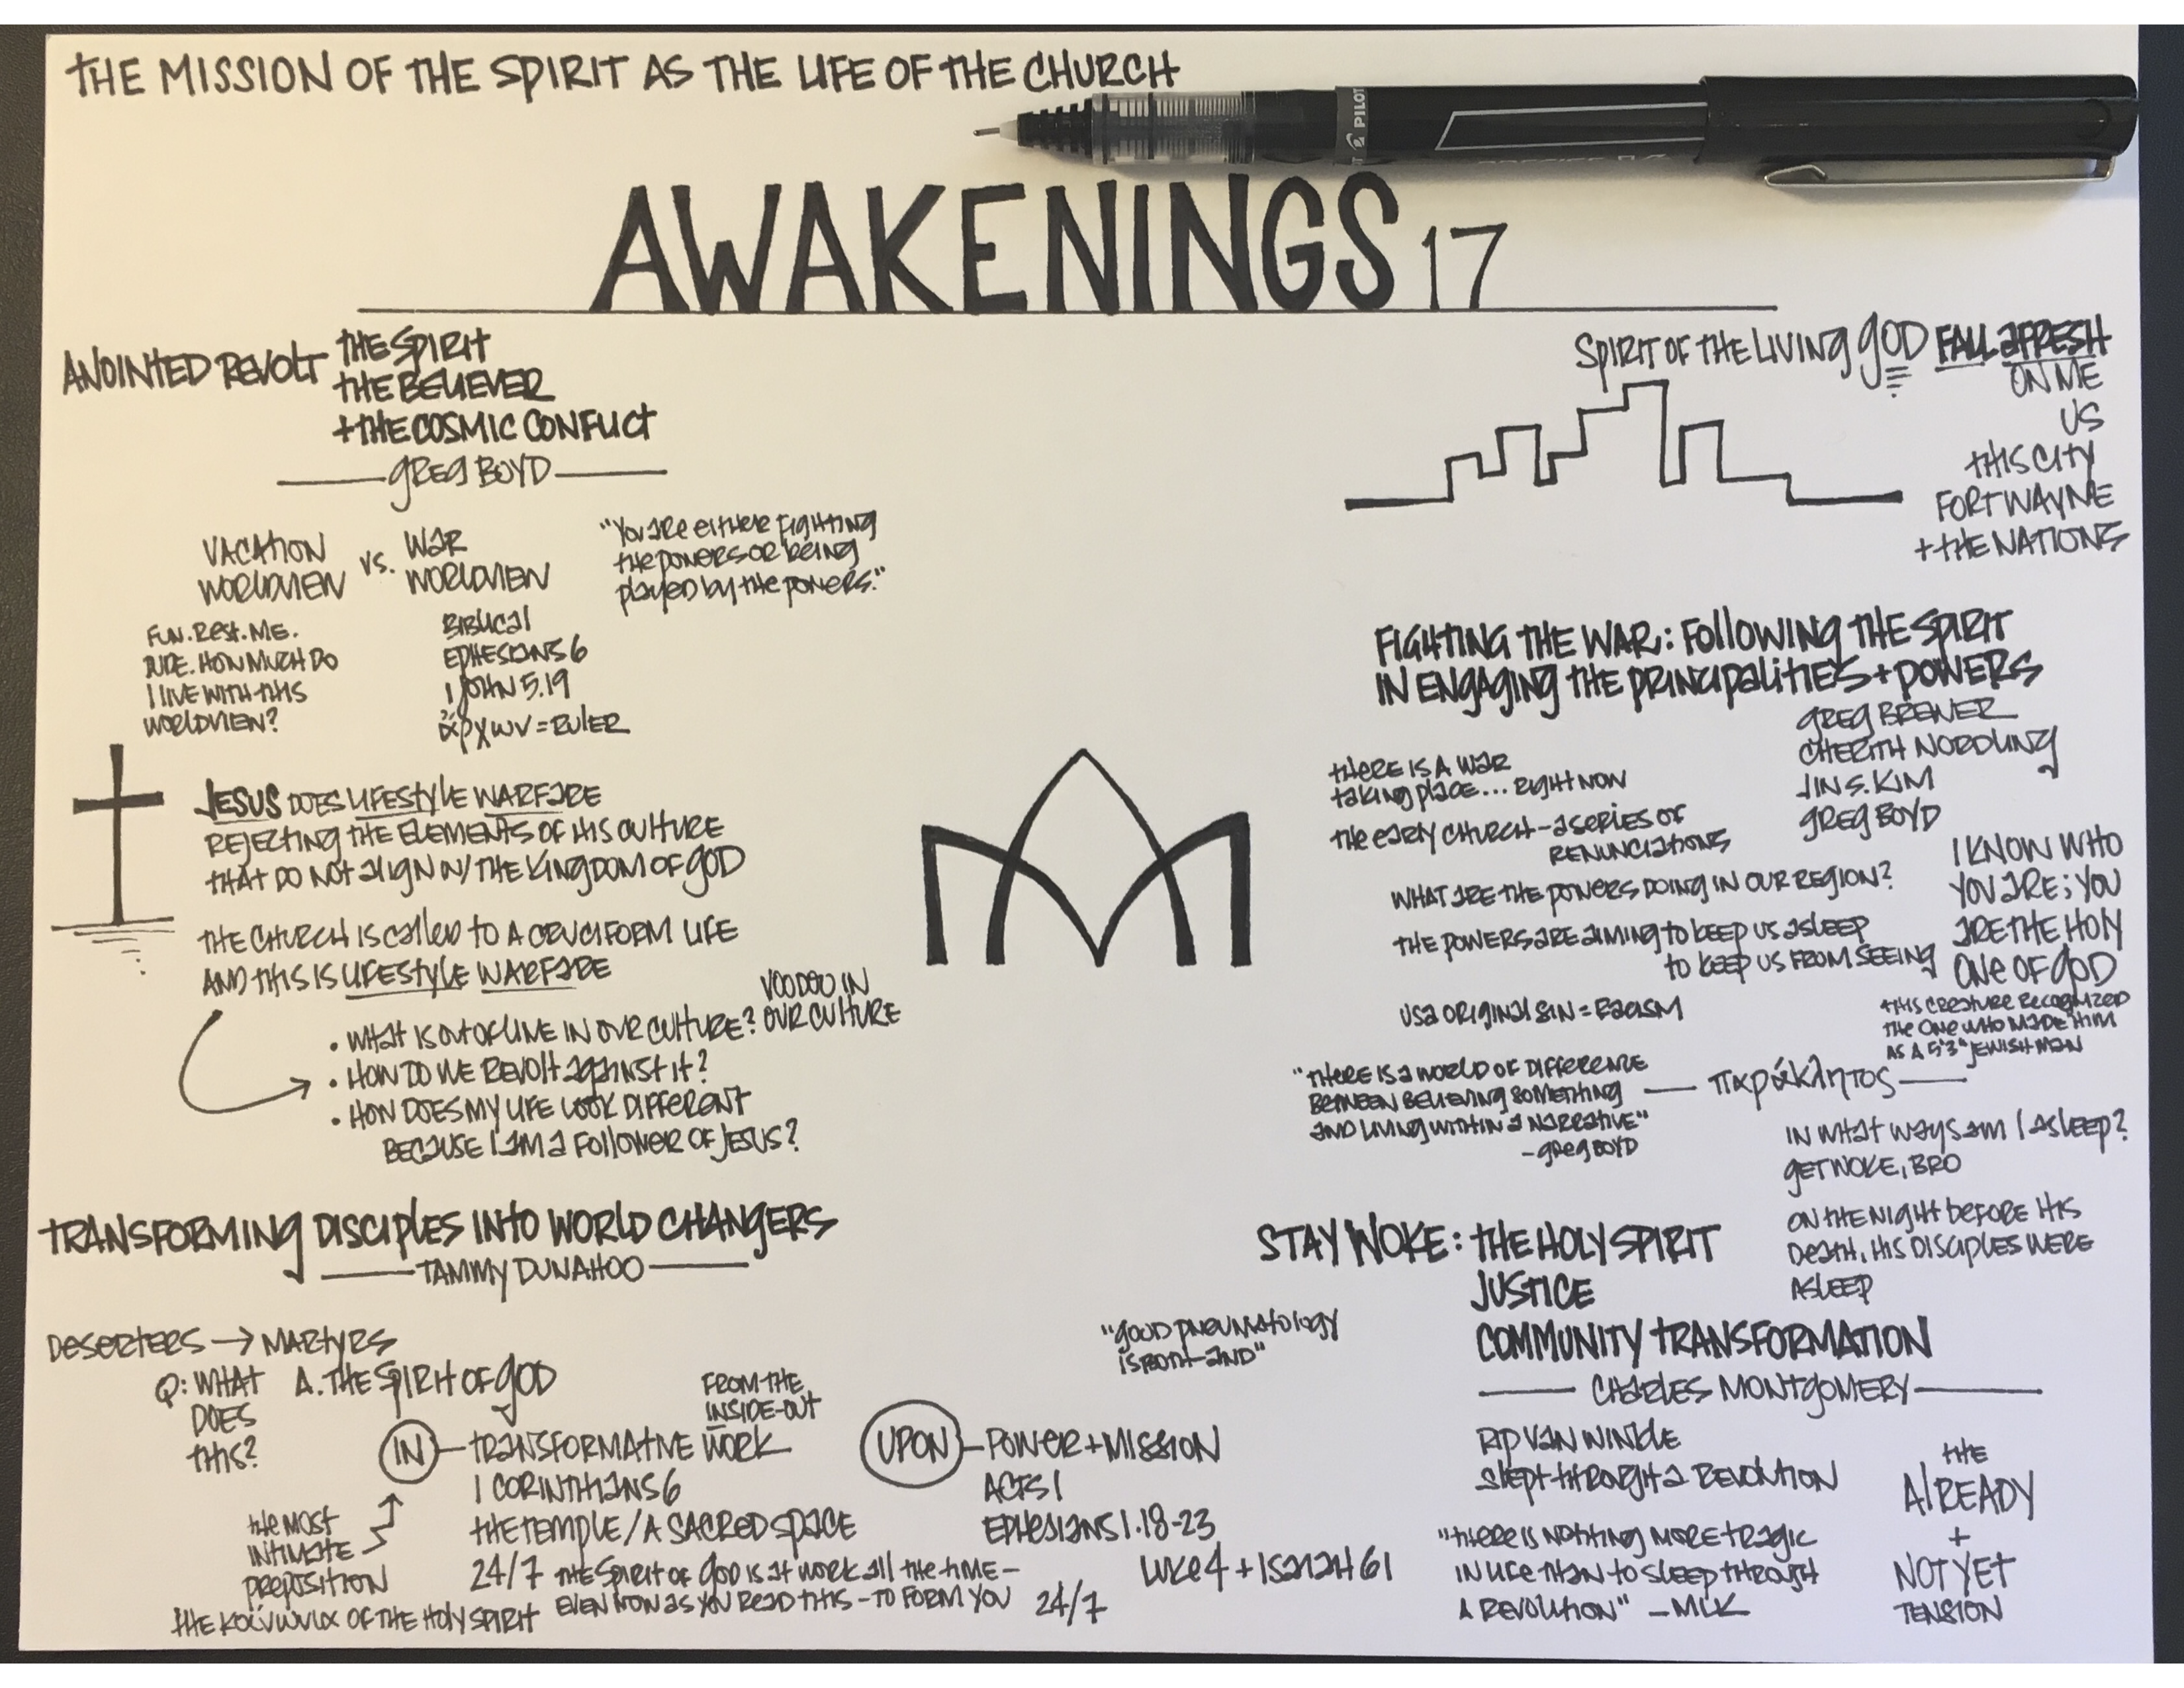 THE MISSION OF THE SPIRIT AS THE LIFE OF THE CHURCH
PILOT
AWAKENINGS 17
ANOINTED REVOLT THE SPIRIT
THE BELIEVER
+ THE COSMIC CONFLICT
GREG BOYD
VACATION
WORLDVIEW
VS.
WAR
WORLDVIEW
"YOU ARE EITHER FIGHTING
THE POWERS OR BEING
PLAYED BY THE POWERS."
FUN. REST. ME.
RIDE. HOW MUCH DO
I LIVE WITH THIS
WORLDVIEW?
BIBLICAL
EPHESIANS 6
1 JOHN 5.19
ἄρχων = RULER
JESUS DOES LIFESTYLE WARFARE
REJECTING THE ELEMENTS OF HIS CULTURE
THAT DO NOT ALIGN W/ THE KINGDOM OF GOD
THE CHURCH IS CALLED TO A CRUCIFORM LIFE
AND THIS IS LIFESTYLE WARFARE
• WHAT IS OUT OF LINE IN OUR CULTURE?
VOODOO IN
OUR CULTURE
• HOW DO WE REVOLT AGAINST IT?
• HOW DOES MY LIFE LOOK DIFFERENT
BECAUSE I AM A FOLLOWER OF JESUS?
TRANSFORMING DISCIPLES INTO WORLD CHANGERS
TAMMY DUNAHOO
DESERTERS → MARTYRS
Q: WHAT
DOES
THIS?
A. THE SPIRIT OF GOD
IN
TRANSFORMATIVE WORK
FROM THE
INSIDE-OUT
1 CORINTHIANS 6
THE TEMPLE / A SACRED SPACE
24/7 THE SPIRIT OF GOD IS AT WORK ALL THE TIME –
EVEN NOW AS YOU READ THIS – TO FORM YOU 24/7
THE MOST
INTIMATE
PREPOSITION
THE κοίνωνια OF THE HOLY SPIRIT
"GOOD PNEUMATOLOGY
IS BOTH-AND"
UPON
POWER + MISSION
ACTS 1
EPHESIANS 1.18-23
LUKE 4 + ISAIAH 61
SPIRIT OF THE LIVING GOD FALL AFRESH
ON ME
US
THIS CITY
FORT WAYNE
+ THE NATIONS
FIGHTING THE WAR: FOLLOWING THE SPIRIT
IN ENGAGING THE PRINCIPALITIES + POWERS
GREG BREWER
CHERITH NORDLING
JIN S. KIM
GREG BOYD
THERE IS A WAR
TAKING PLACE... RIGHT NOW
THE EARLY CHURCH – A SERIES OF
RENUNCIATIONS
WHAT ARE THE POWERS DOING IN OUR REGION?
THE POWERS ARE AIMING TO KEEP US ASLEEP
TO KEEP US FROM SEEING
USA ORIGINAL SIN = RACISM
I KNOW WHO
YOU ARE; YOU
ARE THE HOLY
ONE OF GOD
THIS CREATURE RECOGNIZED
THE ONE WHO MADE HIM
AS A 5'3" JEWISH MAN
"THERE IS A WORLD OF DIFFERENCE
BETWEEN BELIEVING SOMETHING
AND LIVING WITHIN A NARRATIVE"
– GREG BOYD
παράκλητος
IN WHAT WAYS AM I ASLEEP?
GET WOKE, BRO
ON THE NIGHT BEFORE HIS
DEATH, HIS DISCIPLES WERE
ASLEEP
STAY WOKE: THE HOLY SPIRIT
JUSTICE
COMMUNITY TRANSFORMATION
CHARLES MONTGOMERY
RIP VAN WINKLE
SLEPT THROUGH A REVOLUTION
"THERE IS NOTHING MORE TRAGIC
IN LIFE THAN TO SLEEP THROUGH
A REVOLUTION" – MLK
THE
ALREADY
+
NOT YET
TENSION